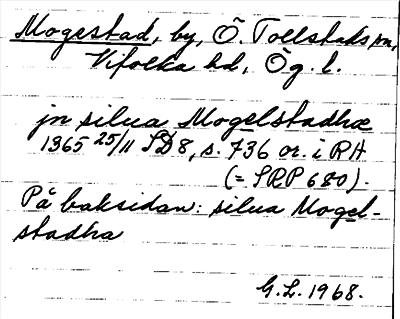 Mogestad, by, Ö. Tollstads sn,
Vifolka hd, Ög. l.
jn silua Mogelstadhæ
1365 25/11 SD 8, s. 736 or. i RA
(= SRP 680).
På baksidan: silua Mogel-
stadha
G.L. 1968.